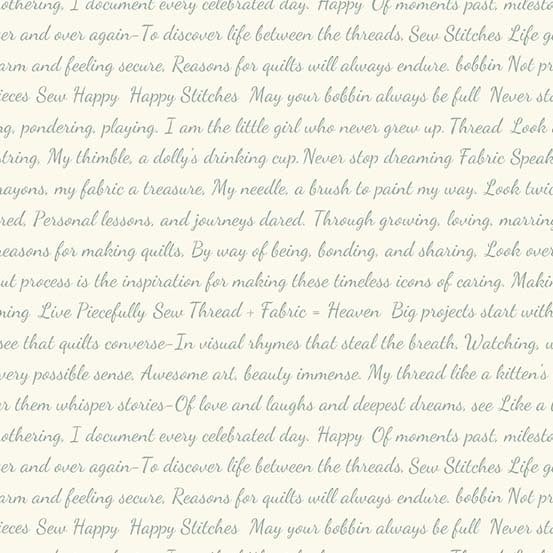 othering, I document every celebrated day. Happy Of moments past, milesto
er and over again-To discover life between the threads, Sew Stitches Life g
arm and feeling secure, Reasons for quilts will always endure. bobbin Not pr
ieces Sew Happy Happy Stitches May your bobbin always be full Never st
ng, pondering, playing. I am the little girl who never grew up. Thread Look
string, My thimble, a dolly's drinking cup. Never stop dreaming Fabric Speak
rayons, my fabric a treasure, My needle, a brush to paint my way. Look twi
red, Personal lessons, and journeys dared. Through growing, loving, marrin
reasons for making quilts, By way of being, bonding, and sharing, Look over
ut process is the inspiration for making these timeless icons of caring. Makin
ming Live Piecefully Sew Thread + Fabric = Heaven Big projects start with
see that quilts converse-In visual rhymes that steal the breath, Watching, w
very possible sense, Awesome art, beauty immense. My thread like a kitten's
r them whisper stories-Of love and laughs and deepest dreams, see Like a
othering, I document every celebrated day. Happy Of moments past, milesto
er and over again-To discover life between the threads, Sew Stitches Life g
arm and feeling secure, Reasons for quilts will always endure. bobbin Not pr
ieces Sew Happy Happy Stitches May your bobbin always be full Never st